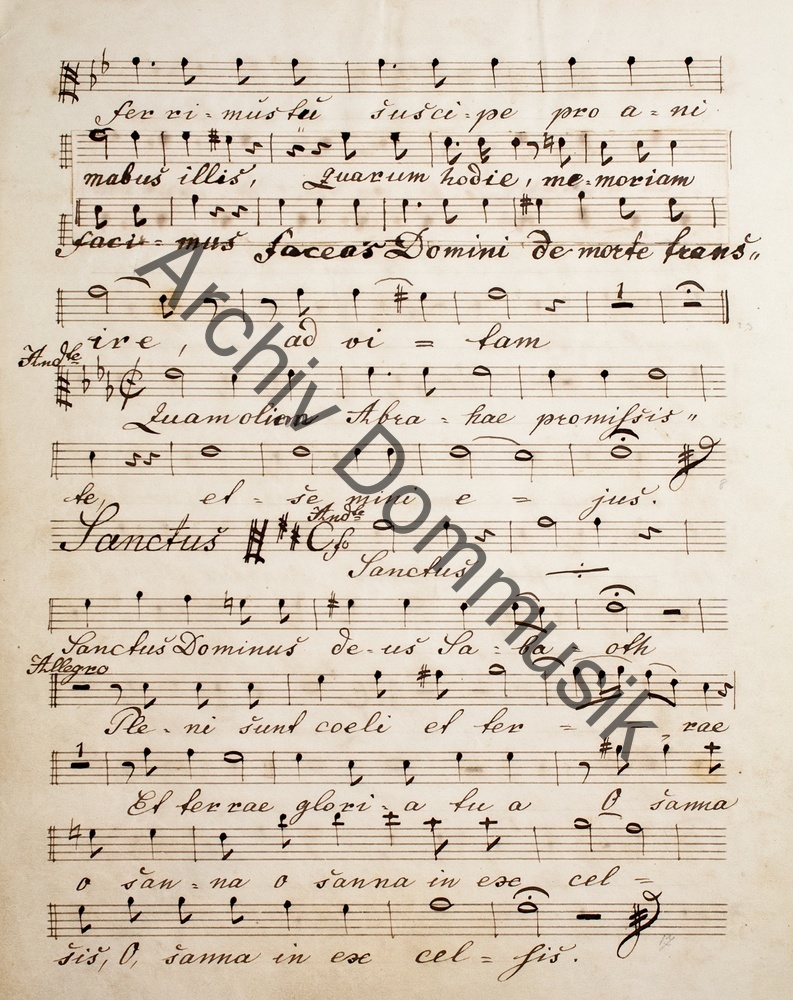 fer ri - mus tu susci - pe pro a - ni
mabus illis, quarum hodie, me - moriam
faci - mus faceas Domini de morte trans"
ire, ad vi = tam
Andte
Quam olim Abra - hae promissis"
te, et - se mini e = jus.
Sanctus Andte
fo
Sanctus
Sanctus Dominus de - us Sa - ba - oth
Allegro
Ple - ni sunt coeli et ter = = rae
1
Et terrae glori - a tu a O sanna
o san - na o sanna in exc cel =
sis, O, sanna in ex cel = sis.
Archiv Dommusik